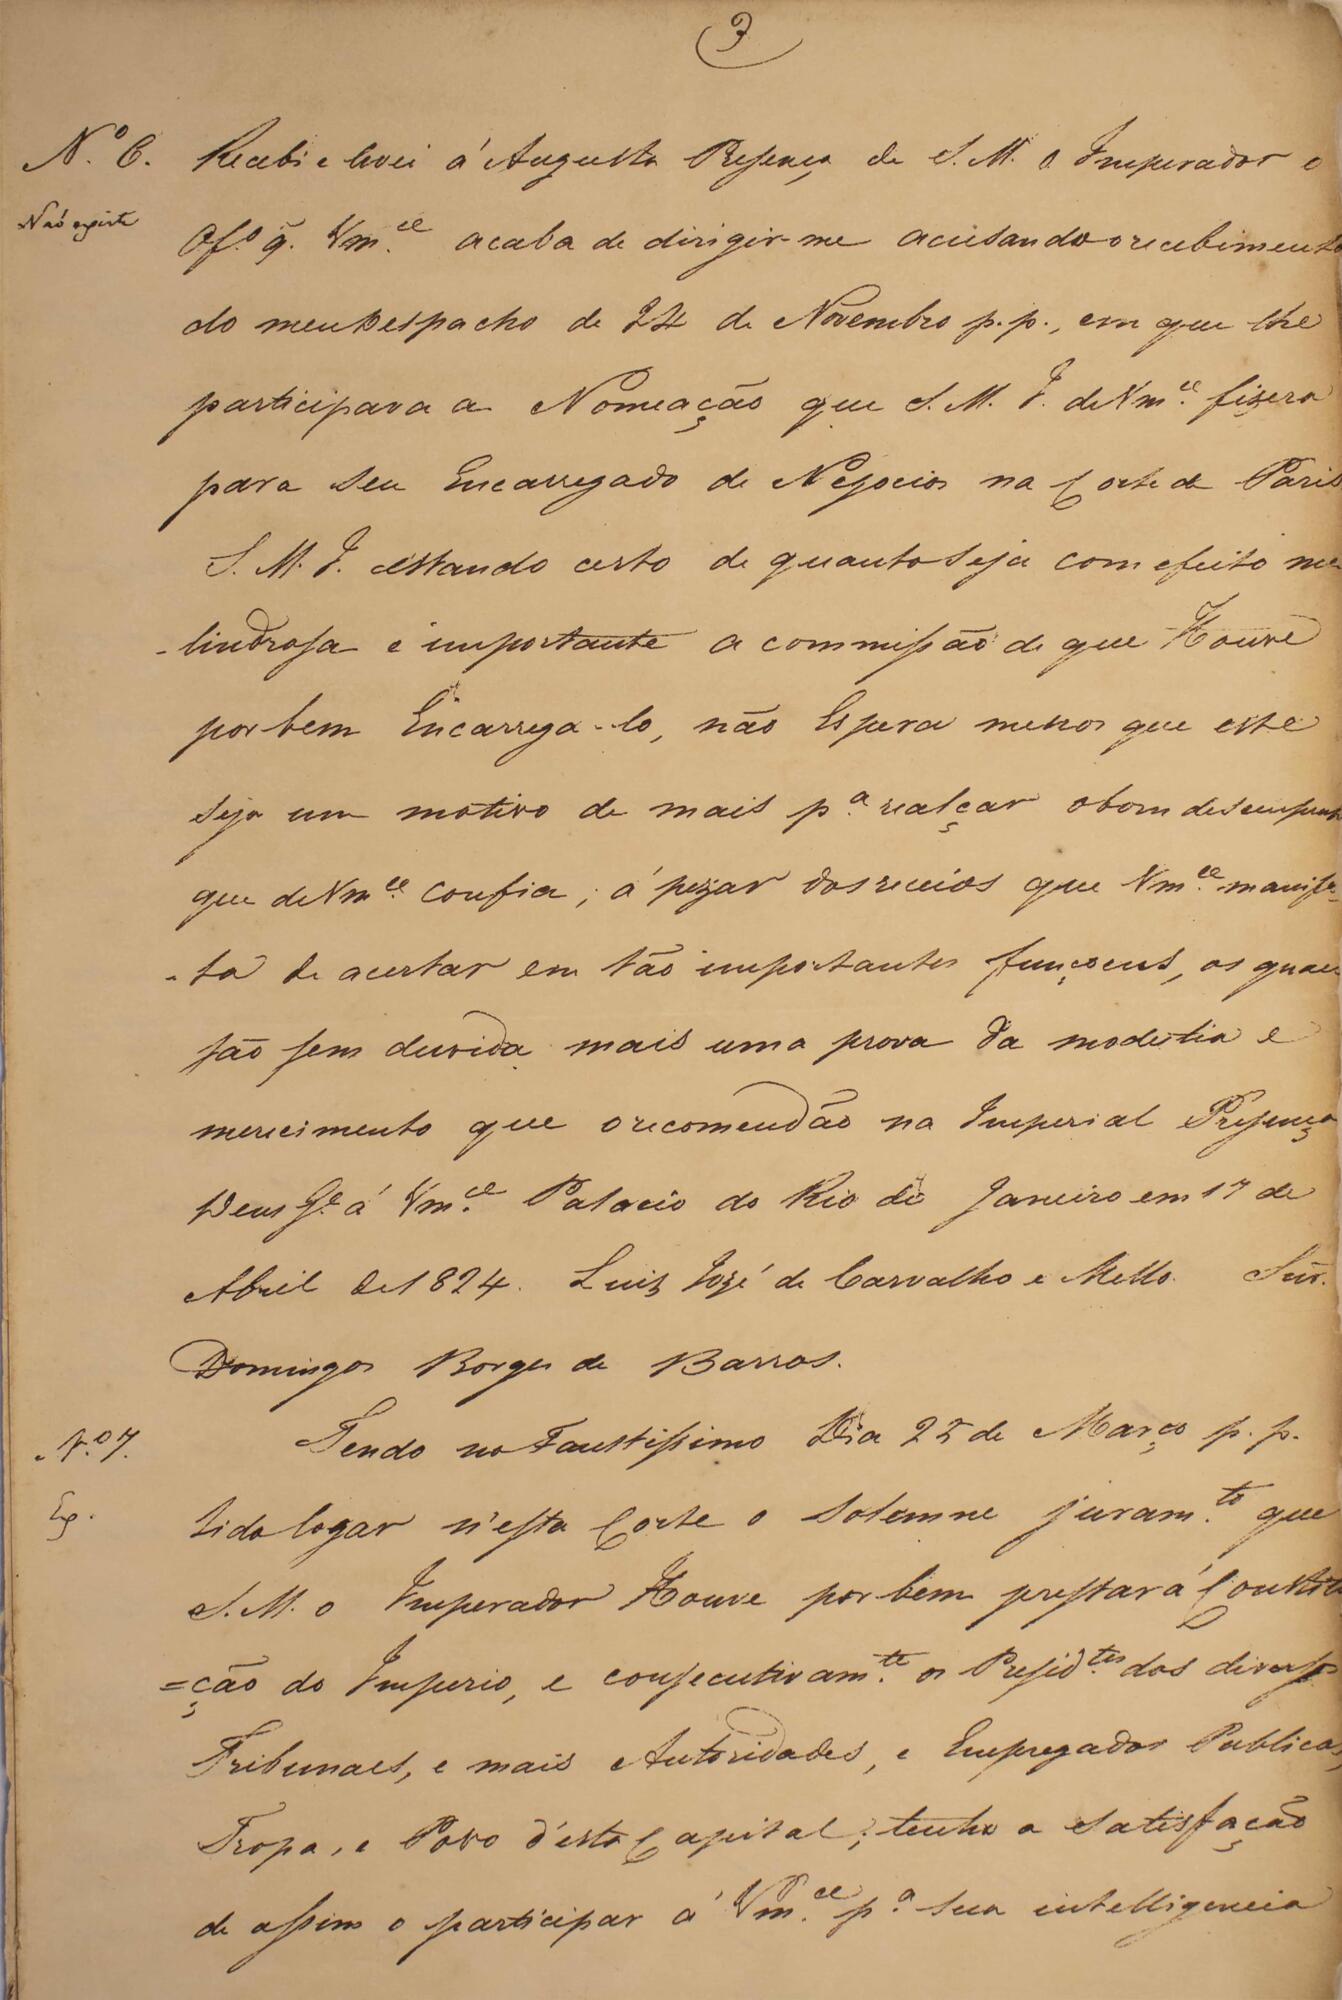 3
Nº 6. Recebi e levei á Augusta Presença de S. M. o Imperador o
Não existe
Ofº q. Vm.ce acaba de dirigir-me acusando o recebimento
do meu Despacho de 24 de Novembro p. p., em que lhe
participava a Nomeação que S. M. I. de Vm.ce fizera
para seu Encarregado de Negocios na Corte de Paris
S. M. I. estando certo de quanto seja com efeito me
-lindrosa e importante a commissão de que Houve
por bem Encarrega-lo, não Espera menos que este
seja um motivo de mais p.a realçar o bom desempenho
que de Vm.ce confia; á pezar dos receios que Vm.ce manifes-
-ta de acertar em tão importantes funçoens, os quaes
são sem duvida mais uma prova da modestia e
merecimento que o recomendão na Imperial Presença
Deus G.e á Vm.ce Palacio do Rio de Janeiro em 17 de
Abril de 1824. Luiz José de Carvalho e Mello. Snr.
Domingos Borges de Barros.
Nº 7. Tendo no Faustissimo Dia 25 de Março p. p.
Ex.
tido logar n'esta Corte o solemne juram.to que
S. M. o Imperador Houve por bem prestar á Constitu
=ção do Imperio, e consecutivam.te os Presid.tes dos diversos
Tribunaes, e mais Autoridades, e Empregados Publicos,
Tropa, e Povo d'esta Capital; tenho a satisfação
de assim o participar á Vm.ce p.a sua intelligencia